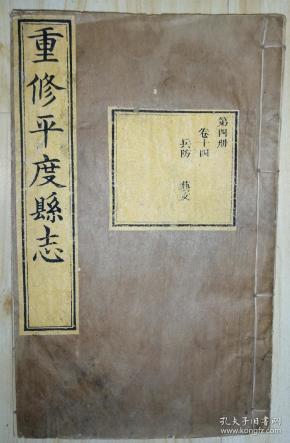 重修平度縣志
第四册
卷十四
兵防 藝文
孔夫子旧书网